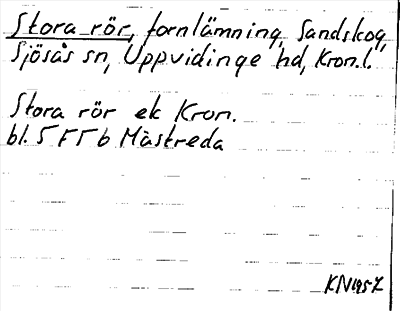 Stora rör, fornlämning, Sandskog,
Sjösås sn, Uppvidinge hd, Kron.l.
Stora rör ek Kron.
bl. 5 F 5 b Mästreda
KN 1957